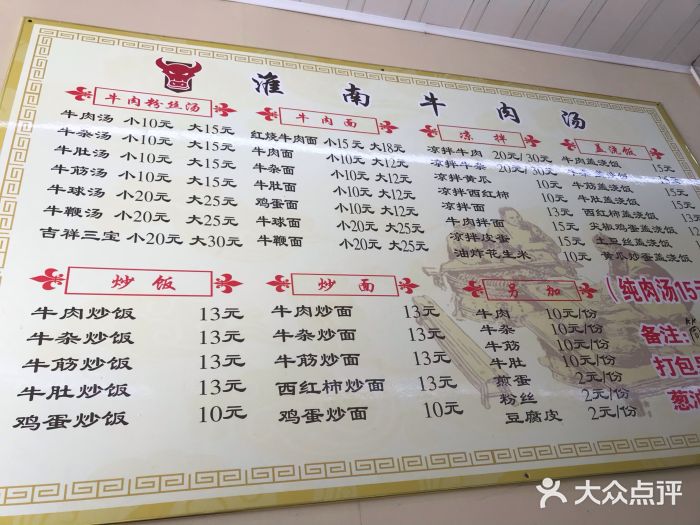 淮南牛肉汤
牛肉粉丝汤
牛肉汤 小10元 大15元
牛杂汤 小10元 大15元
牛肚汤 小10元 大15元
牛筋汤 小10元 大15元
牛球汤 小20元 大25元
牛鞭汤 小20元 大25元
吉祥三宝 小20元 大30元
牛肉面
红烧牛肉面 小15元 大18元
牛肉面 小10元 大12元
牛杂面 小10元 大12元
牛肚面 小10元 大12元
鸡蛋面 小10元 大12元
牛球面 小20元 大25元
牛鞭面 小20元 大25元
凉拌
凉拌牛肉 20元/30元
凉拌牛杂 20元/30元
凉拌黄瓜 10元
凉拌西红柿 10元
凉拌面 10元
牛肉拌面 15元
凉拌皮蛋 15元
油炸花生米 10元
盖浇饭
牛肉盖浇饭 15元
牛杂盖浇饭 15元
牛筋盖浇饭 15元
牛肚盖浇饭 15元
西红柿盖浇饭
尖椒鸡蛋盖浇饭
土豆丝盖浇饭
黄瓜炒蛋盖浇饭
炒饭
牛肉炒饭 13元
牛杂炒饭 13元
牛筋炒饭 13元
牛肚炒饭 13元
鸡蛋炒饭 10元
炒面
牛肉炒面 13元
牛杂炒面 13元
牛筋炒面 13元
西红柿炒面 13元
鸡蛋炒面 10元
另加
牛肉 10元/份
牛杂 10元/份
牛筋 10元/份
牛肚 10元/份
煎蛋 2元/份
粉丝 2元/份
豆腐皮 2元/份
(纯肉汤15元
备注:
打包
葱油
大众点评